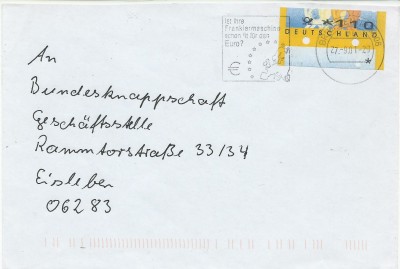 Ist Ihre
Frankiermaschine
schon fit für den
Euro?
€
* 110
DEUTSCHLAND
An
Bundesknappschaft
Geschäftsstelle
Rammtorstraße 33/34
Eisleben
06283